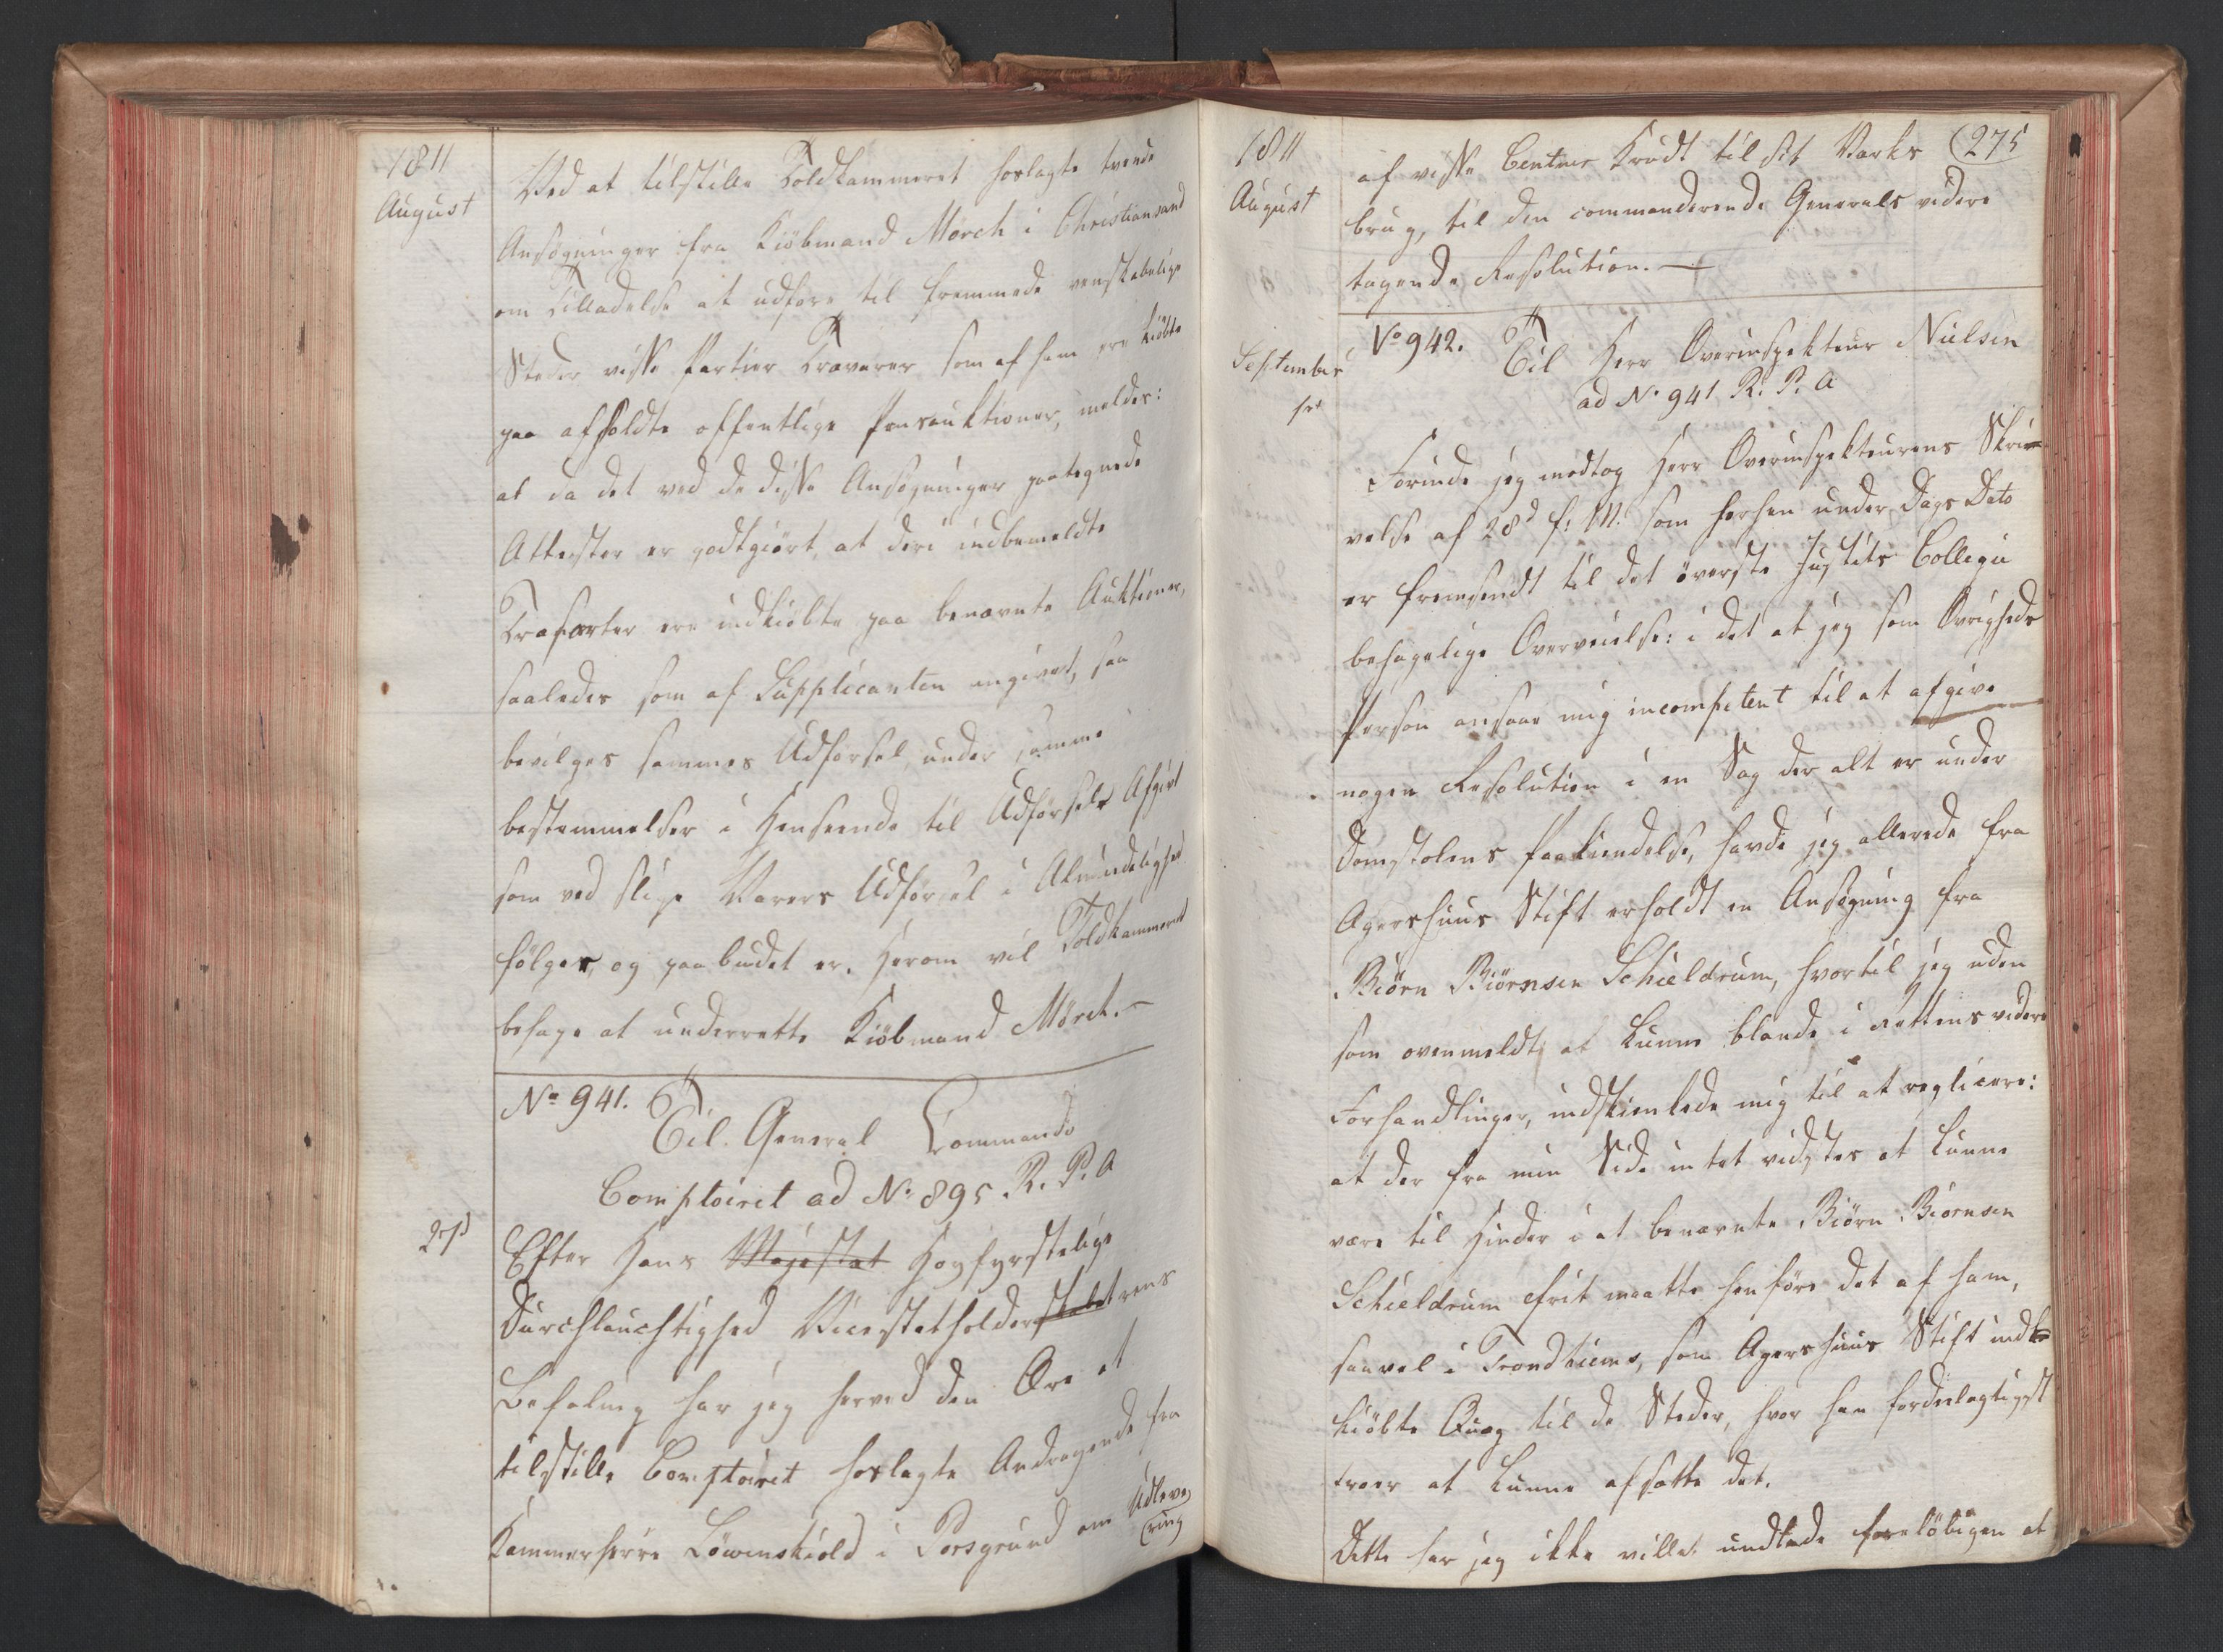 1811
August
Ved at tilstille Toldkammeret hoslagte tvende
Ansøgninger fra Kiöbmand Mörch i Christiansand
om Tilladelse at udføre til fremmede venskabelige
Steder visse Partier Trævarer som af ham ere kiöbte
paa afholdte offentlige Priseauktioner, meldes:
at da det ved de disse Ansøgninger paategnede
Attester er godtgiört, at deri indbemeldte
Trasorter ere indkiöbte paa benævnte Auktioner,
saaledes som af Supplicanten angivet, saa
bevilges sammes Udførsel under samme
bestemmelser i Henseende til Udførsels Afgivt
som ved slige Varers Udførsel i Almindelighed
fölger, og paabudet er. Herom vil Toldkammeret
behage at underrette Kiöbmand Mörch. –
No 941. Til General Commando
Comptoiret ad No 895 R. P. A
27d
Efter Hans Majestæt Høyfyrstelige
Durchlauchtighed Vicestatholderskabet rens
Befaling har jeg herved den Ære at
tilstille Comptoiret hoslagte Andragende fra
Kammerherre Löwenskiold i Porsgrund om Udleve
(ring
1811
August
af visse Centner Krudt til sit Værks (275
brug, til den commanderende Generals videre
tagende Resolution. –
September
1st
No 942. Til Herr Overinspekteur Nielsen
ad No 941 R. P. A
Førinde jeg modtog Herr Overinspekteurens Skri-
velse af 28d f: M: som herhen under Dags Dato
er fremsendt til det överste Justits Collegii
behagelige Overveielse: i det at jeg som Øvrigheds
Person ansaae mig incompetent til at afgive
nogen Resolution i en Sag der alt er under
Domstolens Paakiendelse, havde jeg allerede fra
Agershuus Stift erholdt en Ansøgning fra
Biörn Biörnsen Schieldrum, hvortil jeg uden
som ovenmeldt, at kunne blande i Rettens videre
Forhandlinger, indskienkede mig til at replicere:
at der fra min Side intet vidstes at kunne
være til Hinder i at benævnte Biörn Biörnsen
Schieldrum frit maatte henföre det af ham,
saavel i Trondhiems, som Agershuus Stift ind-
kiöbte Qvæg til de Steder, hvor han fordeelagtigst
troer at kunne afsætte det.
Dette har jeg ikke villet undlade foreløbigen at